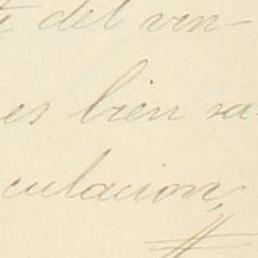 del vin-
es bien sa-
culacion,